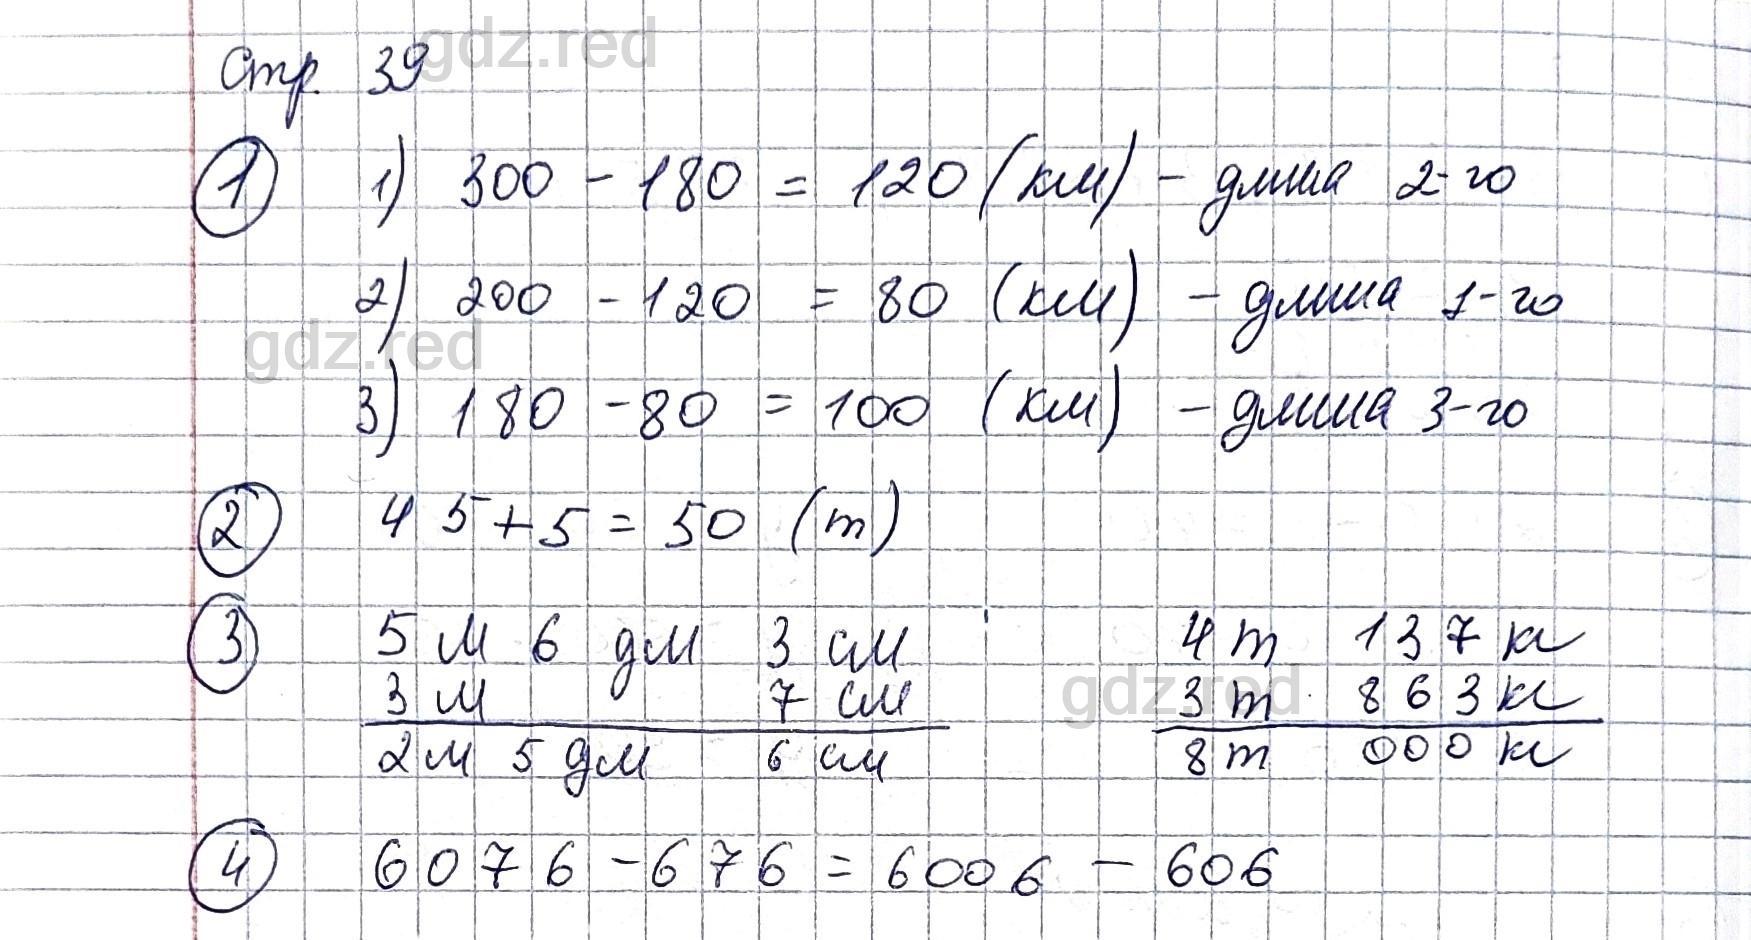 Стр. 39
gdz.red
1 1) 300 - 180 = 120 (км) - длина 2-го
2) 200 - 120 = 80 (км) - длина 1-го
gdz.red
3) 180 - 80 = 100 (км) - длина 3-го
2 45 + 5 = 50 (т)
3 5 м 6 дм 3 см 4 т 137 кг
3 м 7 см 3 т 863 кг
gdz.red
2 м 5 дм 6 см 8 т 000 кг
4 6076 - 676 = 6006 - 606